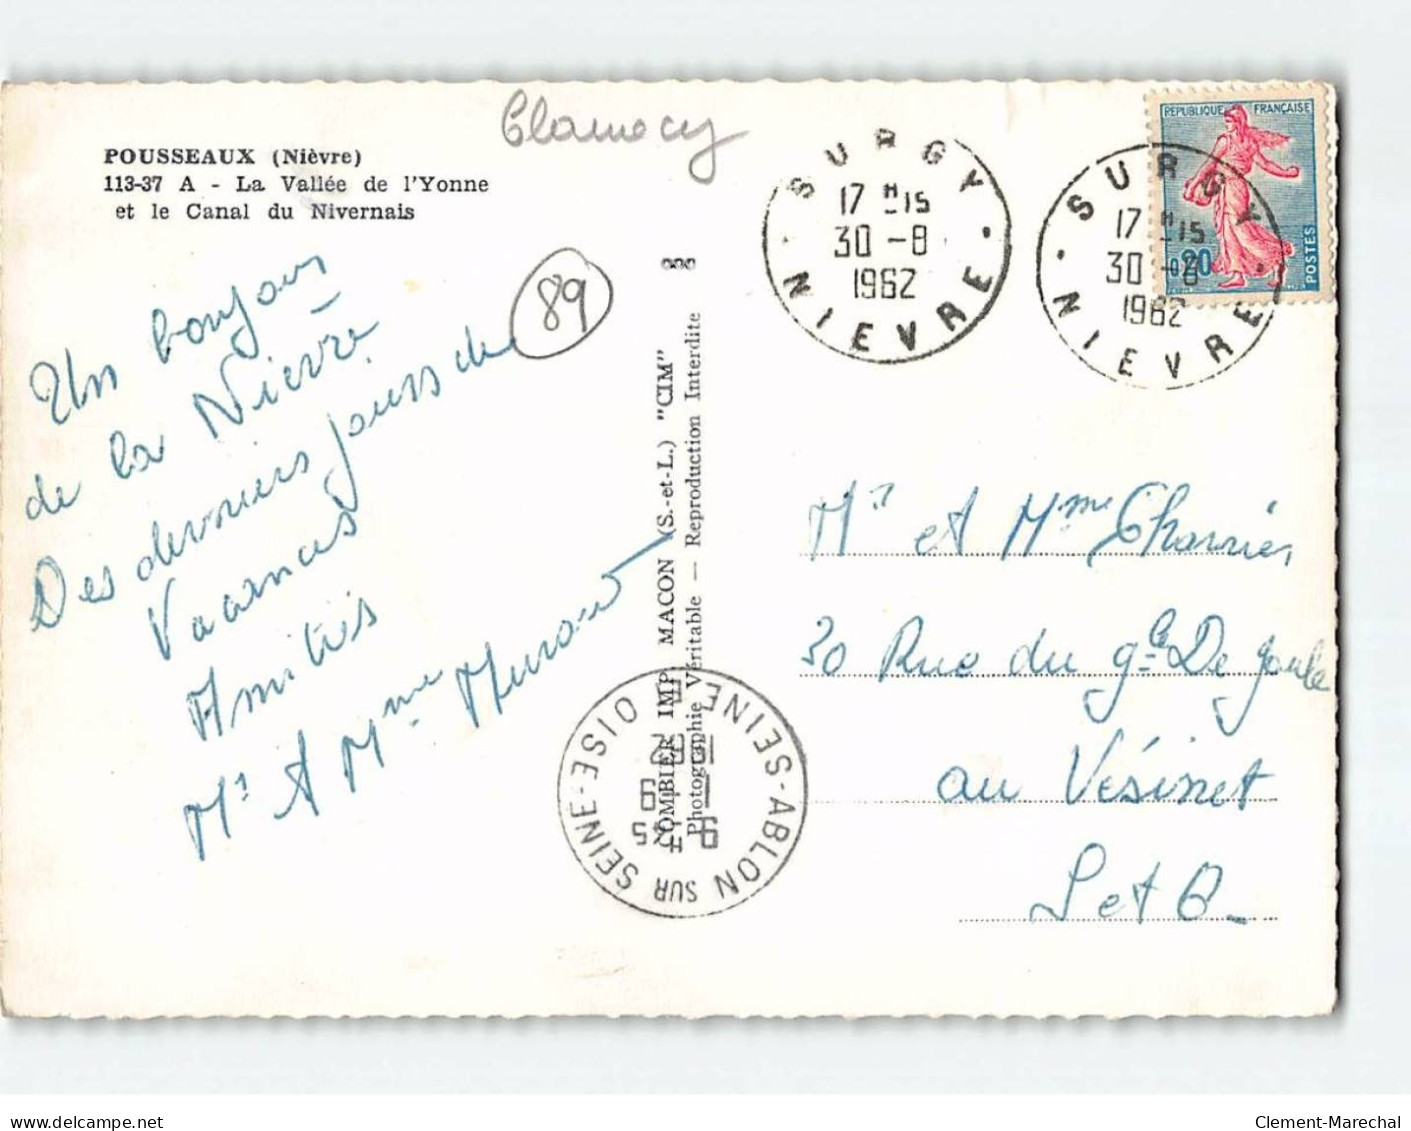 Clamecy
POUSSEAUX (Nièvre)
113-37 A - La Vallée de l'Yonne
et le Canal du Nivernais
Un bonjour
de la Nièvre
Des derniers jours de
Vacances
Amitiés
Mr & Mme
89
COMBIER IMP. MACON (S.-et-L.) "CIM"
Photographie Véritable — Reproduction Interdite
SURGY
17 H 15
30 -8
1962
NIEVRE
SURGY
17 H 15
30 -8
1962
NIEVRE
REPUBLIQUE FRANÇAISE
0,20
POSTES
ABLON SUR SEINE
9 H 45
1 - 9
1962
SEINE-ET-OISE
Mr et Mme Charrier
30 Rue du gal De Gaulle
au Vésinet
S et O
delcampe.net
Clement-Marechal